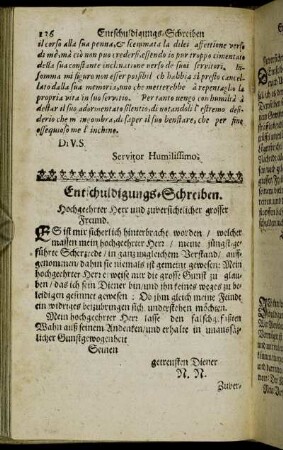 126 Entschuldigungs-Schreiben
il corso alla sua penna, & scemmata la dilei affettione verso
di mè, ma ciò non puo credersi, essendo io pur troppo cimentato
della sua constante inclinatione verso de suoi servitori. In-
somma mi siguro non esser possibil ch habbia sì presto cancel-
lato dalla sua memoria, uno che metterebbe à repentaglio la
propria vita in suo servitio. Per tanto vengo con humiltà à
destar il suo adormentato silentio, di notandoli l'estremo desi-
derio che m ingombra, di saper il suo benstare, che per fine
ossequioso me l'inchino.
Di V.S.
Servitor Humilissimo.
Entschuldigungs-Schreiben.
Hochgeehrter Herr und zuversichtlicher grosser
Freund.
ES ist mir sicherlich hinterbracht worden / welcher
massen mein hochgeehrter Herr / meine jüngst ge-
führte Scherzrede / in ganz ungleichem Verstand / auff-
genommen / dahin sie niemals ist gemeint gewesen: Mein
hochgeehrter Herr erweise mir die grosse Gunst zu glau-
ben / das ich sein Diener bin / und ihn keines weges zu be-
leidigen gesinnet gewesen; Ob ihm gleich meine Feinde
ein widriges beizubringen sich understehen möchten.
Mein hochgeehrter Herr lasse den falschgefasten
Wahn auß seinem Andenken / und erhalte in unausfäz-
licher Gunstgewogenheit
Seinen
getreusten Diener
N. N.
Zuver-